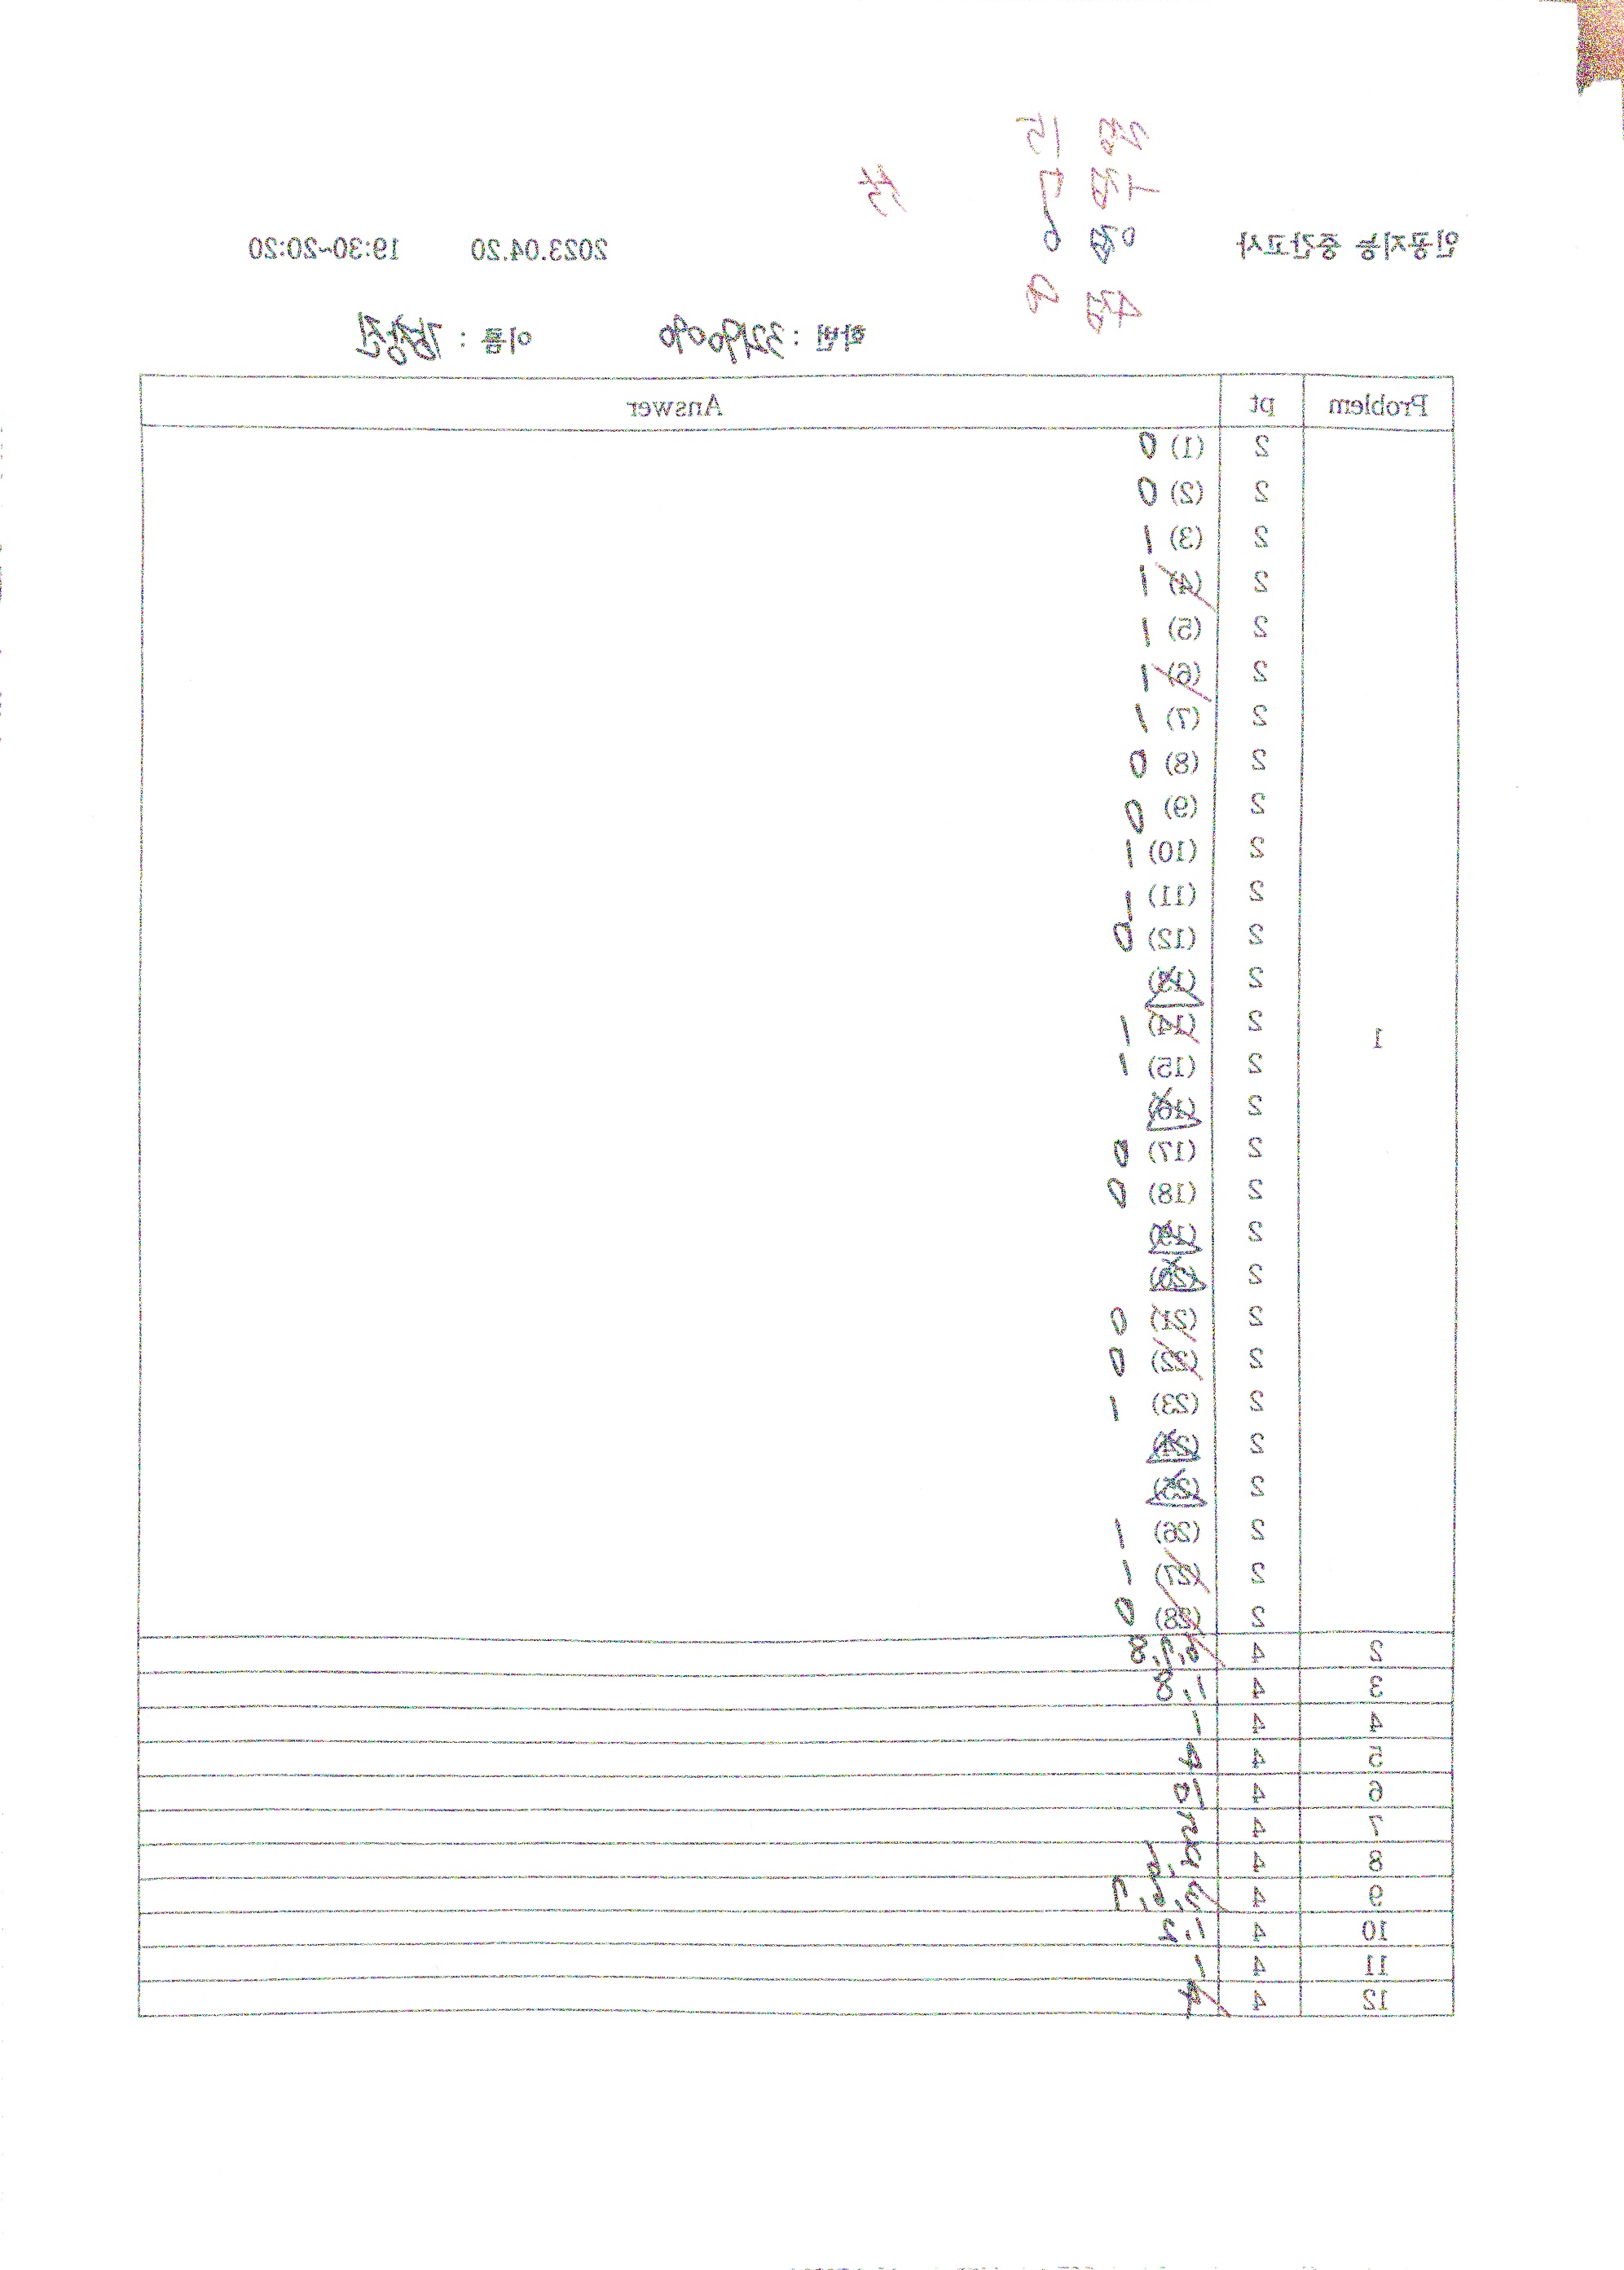 2점 15
-1점 7
0점 6
4점 8
55
인공지능 중간고사 2023.04.20 19:30~20:20
학번 : 32190090 이름 :
Problem pt Answer
1
2 (1) 0
2 (2) 0
2 (3) 1
2 (4) 1
2 (5) 1
2 (6) 1
2 (7) 1
2 (8) 0
2 (9) 0
2 (10) 1
2 (11) 1
2 (12) 0
2 (13)
2 (14) 1
2 (15) 1
2 (16)
2 (17) 0
2 (18) 0
2 (19)
2 (20)
2 (21) 0
2 (22) 0
2 (23) 1
2 (24)
2 (25)
2 (26) 1
2 (27) 1
2 (28) 0
2 4 6,7,8
3 4 1,8
4 4 1
5 4 4
6 4 10
7 4 5
8 4
9 4 3,6,7
10 4 1,2
11 4 1
12 4 4